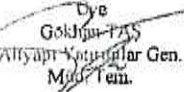 Üye
Gökhan TAŞ
Altyapı Yatırımlar Gen.
Müd. Tem.